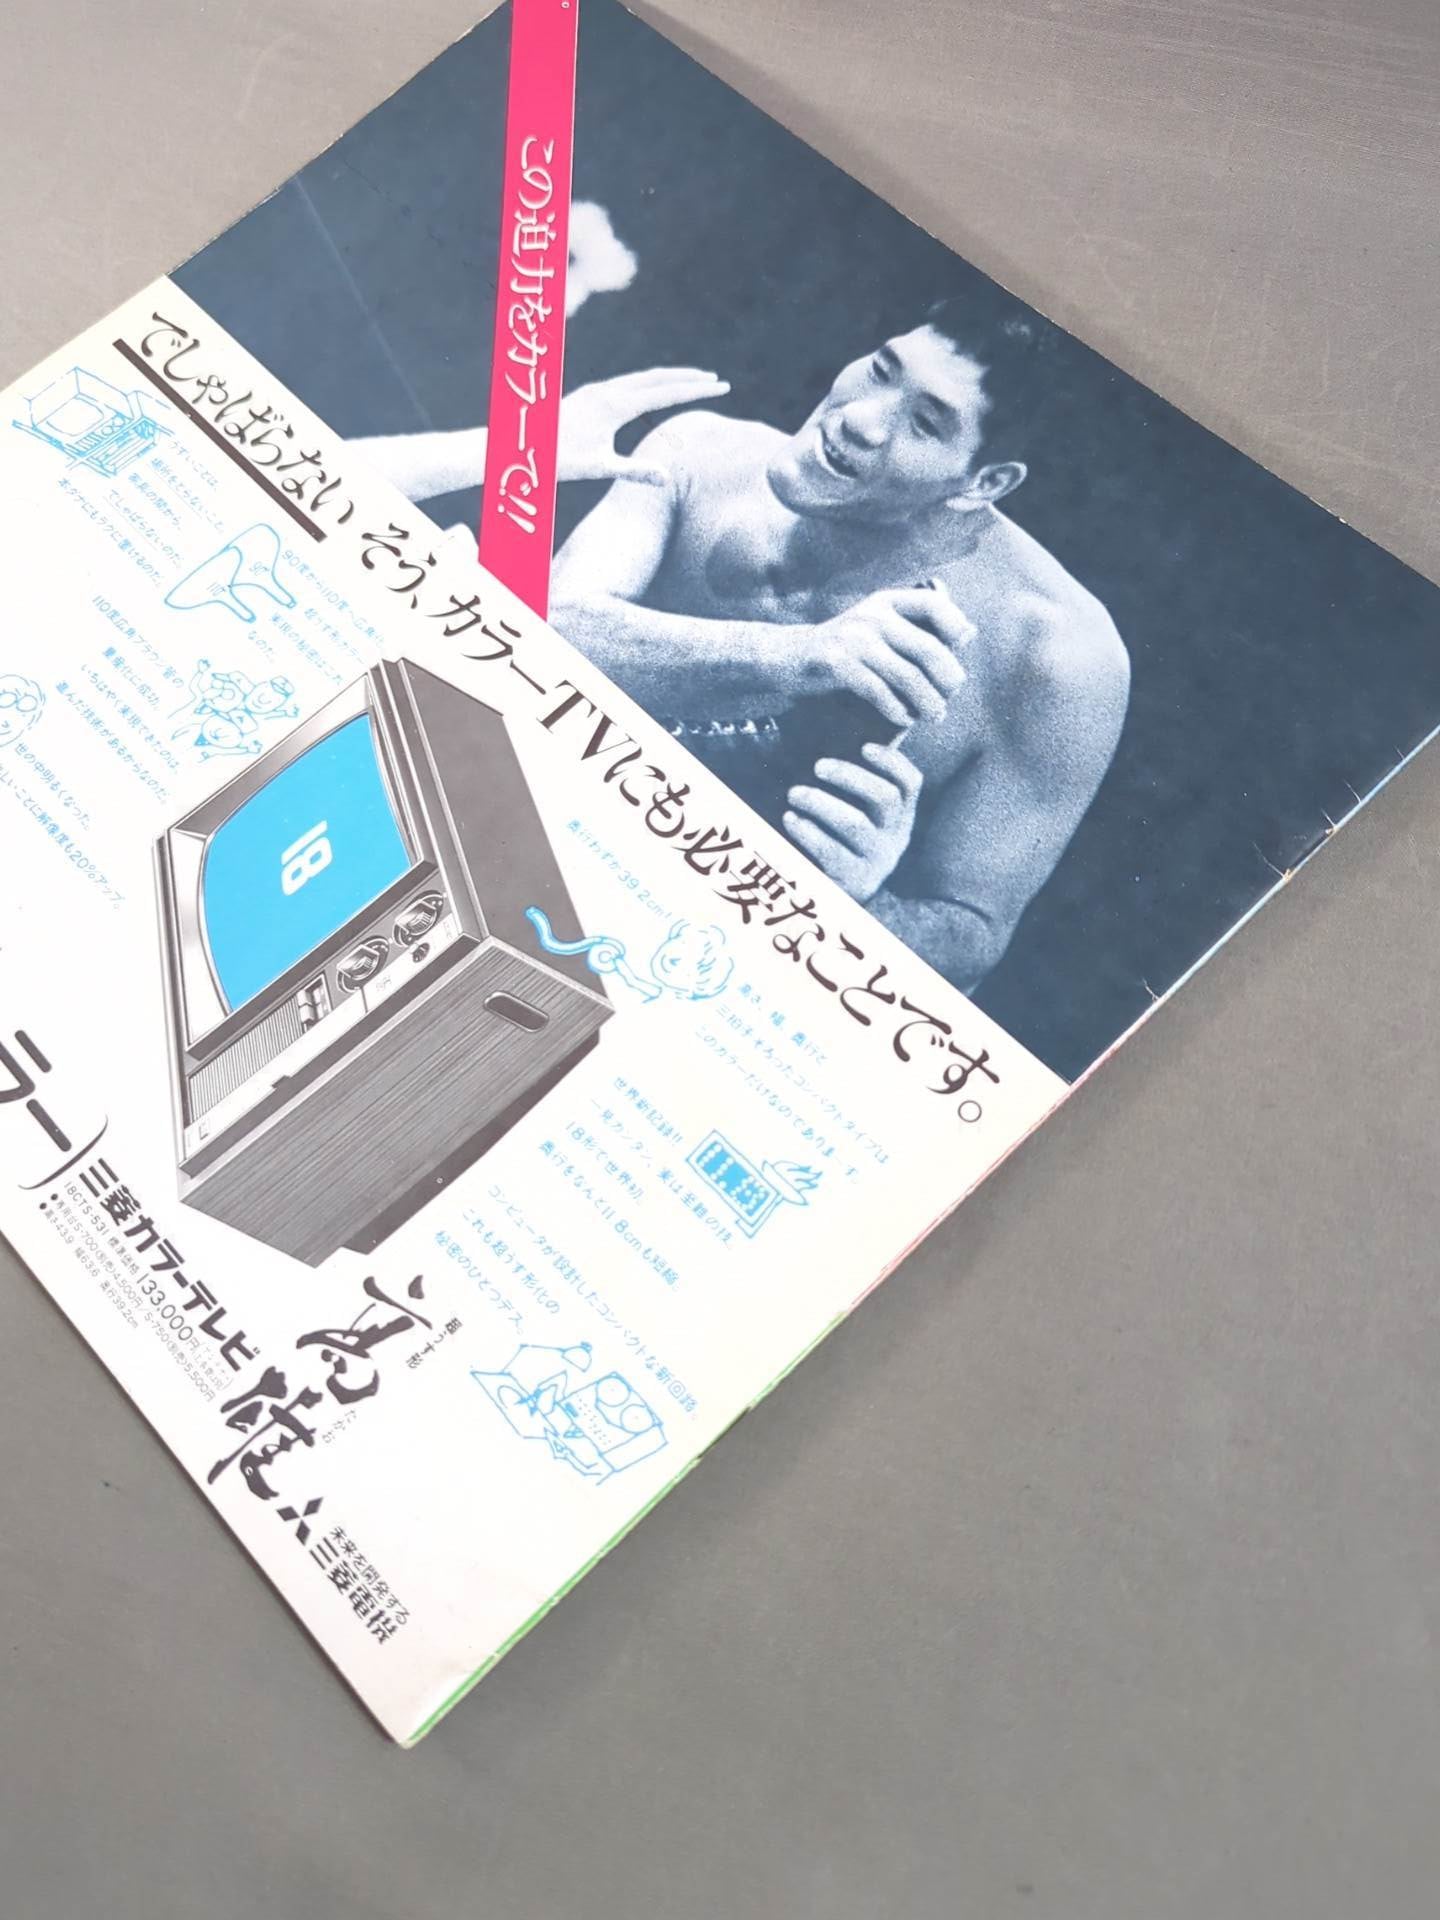 この迫力をカラーで!!
でしゃばらない そう、カラーTVにも必要なことです。
うすいことは、
場所をとらないこと。
家具の間から、
でしゃばらないのだ。
本ダナにもラクに置けるのだ。
90度から110度へ広角化。
超うす形カラー
実現の秘密はこれ
なのだ。
90°
110°
110度広角ブラウン管の
量産化に成功。
いちはやく実現できたのは、
進んだ技術があるからなのだ。
世の中明るくなった。
しいことに解像度も20%アップ。
18
奥行わずか39.2cm!
高さ、幅、奥行と
三拍子そろったコンパクトタイプは
このカラーだけなのであります。
世界新記録!!
一見カンタン、実は至難の技。
18形で世界初。
奥行をなんと11.8cmも短縮。
コンピュータが設計したコンパクトな新回路。
これも超うす形化の
秘密のひとつデス。
ラー)
三菱カラーテレビ
18CTS-531 標準価格133,000円
専用台S-700(別売)4,500円/S-750(別売)5,500円
高さ43.9 幅63.6 奥行39.2cm
超うす形
高雄
たかお
未来を開発する
三菱電機